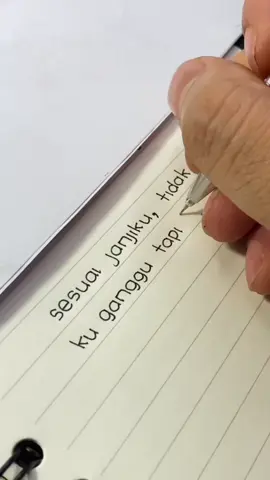 sesuai janjiku, tidak
ku ganggu tapi